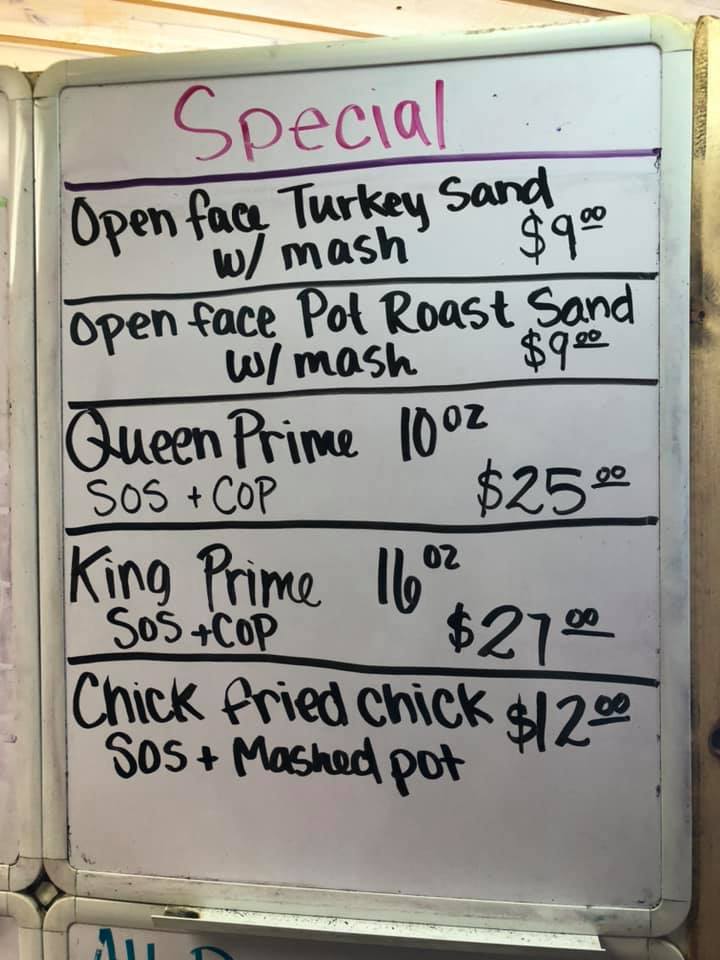 Special
Open face Turkey Sand
w/ mash $9.00
Open face Pot Roast Sand
w/ mash $9.00
Queen Prime 10 oz
SOS + COP $25.00
King Prime 16 oz
SOS + COP $27.00
Chick fried chick $12.00
SOS + Mashed pot